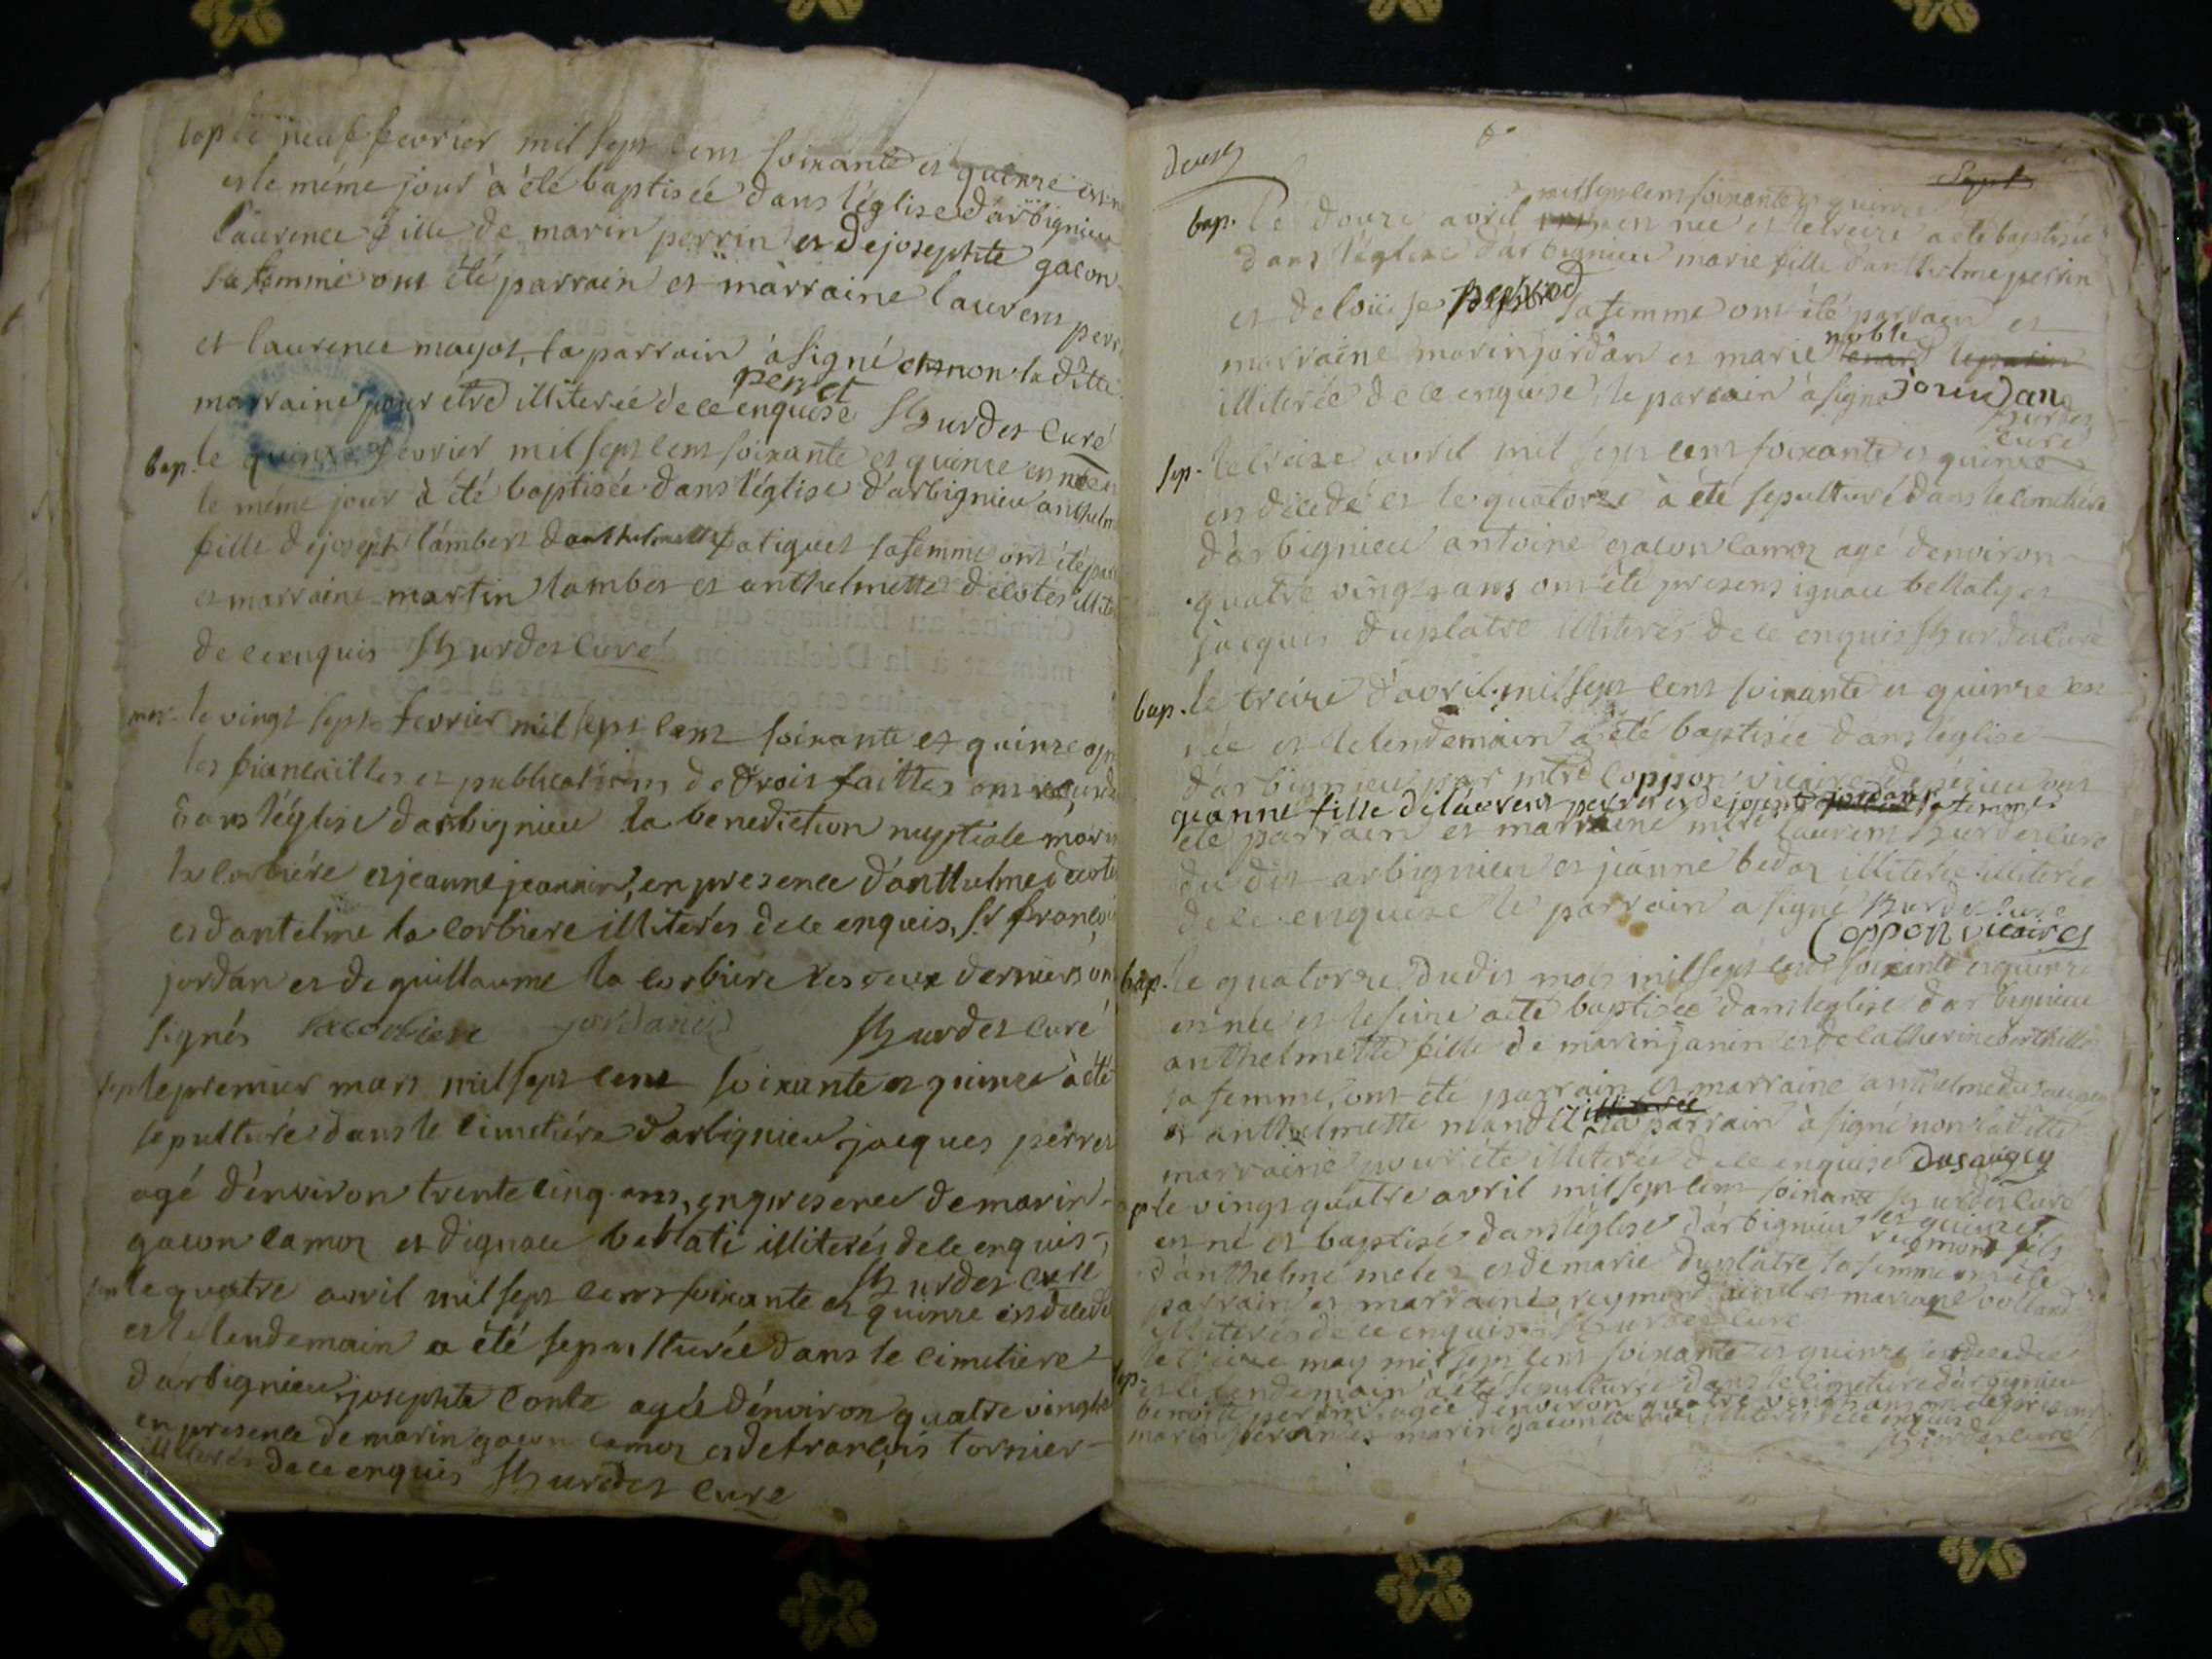 bap le neuf fevrier mil sept cent soixante et quinze est n
et le méme jour à été baptisée dans l'église d'arbignieu
laurence fille de marin perrin et de josephte gacon
sa femme ont été parrain et marraine laurent perr
et laurence mayot, la parrain à signé et non la ditte
marraine pour etre illiterée de ce enquise perret hurdet curé
bap. le quinze fevrier mil sept cent soixante et quinze est née
le méme jour à été baptisée dans l'église d'arbignieu anthelm
fille de joseph lambert d'anthelmette fatiguet sa femme ont été par
et marraine martin lambert et anthelmette decotes illite
de ce enquis hurdet curé
mar. le vingt sept fevrier mil sept cent soixante et quinze apr
les fiancailles et publications de trois faittes ont
dans l'église d'arbignieu la benediction nuptiale mari
la corbiére et jeanne jeannin, en presence d'anthelme decote
et d'antelme la corbiere illiterés de ce enquis, sr françoi
jordan et de guillaume la corbiére les deux derniers on
signés lacorbiere jordan hurdet curé
sep le premier mars mil sept cent soixante et quinze à été
sepulturé dans le cimetiére d'arbignieu jacques perret
agé d'environ trente cinq ans, en presence de marin
gacon camoz et d'ignace bellati illiterés de ce enquis
hurdet curé
sep le quatre avril mil sept cent soixante et quinze est decedé
et le lendemain a été sepulturée dans le cimetiere
d'arbignieu josephte conte agée d'environ quatre vingt
en presence de marin gacon camoz et de françois tornier
illiterés de ce enquis hurdet curé
deux
Sept
mil sept cent soixante et quinze
bap. le douze avril est née et le treize a été baptisée
dans l'église d'arbignieu marie fille d'anthelme perrin
et de loüise sa femme ont été parrain et
marraine marin jordan et marie noble le parain
illiterée de ce enquise, le parrain à signé jourdan
hurdet curé
sep. le treize avril mil sept cent soixante et quinze
est decedé et le quatorze à été sepulturé dans le cimetiére
d'arbignieu antoine gacon camoz agé d'environ
quatre vingts ans ont été presens ignace bellaty et
jacques duplatre illiterés de ce enquis hurdet curé
bap. le treize d'avril mil sept cent soixante et quinze est
née et le lendemain à été baptisée dans l'église
d'arbignieu par mtre coppon vicaire de ont
jeanne fille de laurent perret et de josephte sa femme
été parrain et marraine mtre laurent hurdet curé
du dit arbignieu et jeanne bedoz illiterée illiterée
de ce enquise le parrain a signé hurdet curé
coppon vicaire
bap. le quatorze dudit mois mil sept cent soixante et quinze
est née et le seize a été baptisée dans l'église d'arbignieu
anthelmette fille de marin janin et de catherine berthellet
sa femme, ont été parrain et marraine anthelme dusaugey
et anthelmette mandet illiterée la parrain à signé non la ditte
marraine pour éte illiterée de ce enquise dusaugey
hurdet curé
le vingt quatre avril mil sept cent soixante et quinze
est né et baptisé dans l'église d'arbignieu reymond fils
d'anthelme melet et de marie duplatre sa femme ont été
parrain et marraine, reymond et mariane
illiterés de ce enquis hurdet curé
sep. le treize may mil sept cent soixante et quinze est decedée
et le lendemain à été sepulturée dans le cimetiere d'arbignieu
benoite perrin agée d'environ quatre vingts ans ont été presens
marin perrin et marin gacon camoz illiterés de ce enquis
hurdet curé